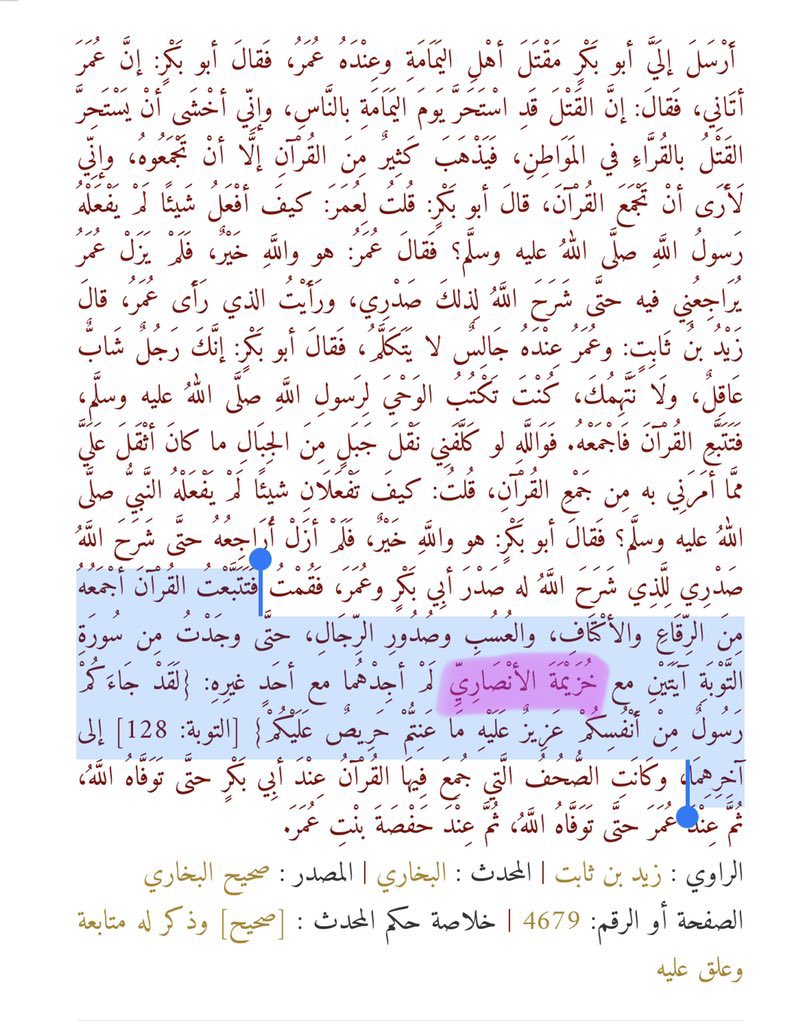 أَرْسَلَ إلَيَّ أبو بَكْرٍ مَقْتَلَ أهْلِ اليَمَامَةِ وعِنْدَهُ عُمَرُ، فَقالَ أبو بَكْرٍ: إنَّ عُمَرَ
أتَانِي، فَقالَ: إنَّ القَتْلَ قَدِ اسْتَحَرَّ يَومَ اليَمَامَةِ بالنَّاسِ، وإنِّي أخْشَى أنْ يَسْتَحِرَّ
القَتْلُ بالقُرَّاءِ في المَوَاطِنِ، فَيَذْهَبَ كَثِيرٌ مِنَ القُرْآنِ إلَّا أنْ تَجْمَعُوهُ، وإنِّي
لَأَرَى أنْ تَجْمَعَ القُرْآنَ، قالَ أبو بَكْرٍ: قُلتُ لِعُمَرَ: كيفَ أفْعَلُ شيئًا لَمْ يَفْعَلْهُ
رَسولُ اللَّهِ صلَّى اللهُ عليه وسلَّم؟ فَقالَ عُمَرُ: هو واللَّهِ خَيْرٌ، فَلَمْ يَزَلْ عُمَرُ
يُرَاجِعُنِي فيه حتَّى شَرَحَ اللَّهُ لِذلكَ صَدْرِي، ورَأَيْتُ الذي رَأَى عُمَرُ، قالَ
زَيْدُ بنُ ثَابِتٍ: وعُمَرُ عِنْدَهُ جَالِسٌ لا يَتَكَلَّمُ، فَقالَ أبو بَكْرٍ: إنَّكَ رَجُلٌ شَابٌّ
عَاقِلٌ، ولَا نَتَّهِمُكَ، كُنْتَ تَكْتُبُ الوَحْيَ لِرَسولِ اللَّهِ صلَّى اللهُ عليه وسلَّم،
فَتَتَبَّعِ القُرْآنَ فَاجْمَعْهُ. فَوَاللَّهِ لو كَلَّفَنِي نَقْلَ جَبَلٍ مِنَ الجِبَالِ ما كانَ أثْقَلَ عَلَيَّ
ممَّا أمَرَنِي به مِن جَمْعِ القُرْآنِ، قُلتُ: كيفَ تَفْعَلَانِ شيئًا لَمْ يَفْعَلْهُ النَّبيُّ صلَّى
اللهُ عليه وسلَّم؟ فَقالَ أبو بَكْرٍ: هو واللَّهِ خَيْرٌ، فَلَمْ أزَلْ أُرَاجِعُهُ حتَّى شَرَحَ اللَّهُ
صَدْرِي لِلَّذِي شَرَحَ اللَّهُ له صَدْرَ أبِي بَكْرٍ وعُمَرَ، فَقُمْتُ فَتَتَبَّعْتُ القُرْآنَ أجْمَعُهُ
مِنَ الرِّقَاعِ والأكْتَافِ، والعُسُبِ وصُدُورِ الرِّجَالِ، حتَّى وجَدْتُ مِن سُورَةِ
التَّوْبَةِ آيَتَيْنِ مع خُزَيْمَةَ الأنْصَارِيِّ لَمْ أجِدْهُما مع أحَدٍ غيرِهِ: {لَقَدْ جَاءَكُمْ
رَسُولٌ مِنْ أَنْفُسِكُمْ عَزِيزٌ عَلَيْهِ مَا عَنِتُّمْ حَرِيصٌ عَلَيْكُمْ} [التوبة: 128] إلى
آخِرِهِمَا، وكَانَتِ الصُّحُفُ الَّتي جُمِعَ فِيهَا القُرْآنُ عِنْدَ أبِي بَكْرٍ حتَّى تَوَفَّاهُ اللَّهُ،
ثُمَّ عِنْدَ عُمَرَ حتَّى تَوَفَّاهُ اللَّهُ، ثُمَّ عِنْدَ حَفْصَةَ بنْتِ عُمَرَ.
الراوي : زيد بن ثابت | المحدث : البخاري | المصدر : صحيح البخاري
الصفحة أو الرقم: 4679 | خلاصة حكم المحدث : [صحيح] وذكر له متابعة
وعلق عليه